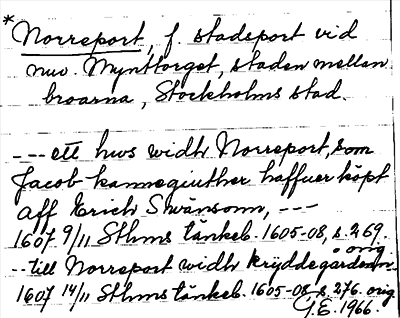 *Norreport, f. stadsport vid
nuv. Mynttorget, staden mellan
broarna, Stockholms stad.
--- ett hws widh Norreport, som
Jacob kannegiuther haffuer köpt
aff Erich Swänsonn, ---
1607 9/11 Sthms tänkeb. 1605-08, s. 269. orig
-- till Norreport widh kryddegårdenn.
1607 14/11 Sthms tänkeb. 1605-08, s. 276. orig.
G.E. 1966.